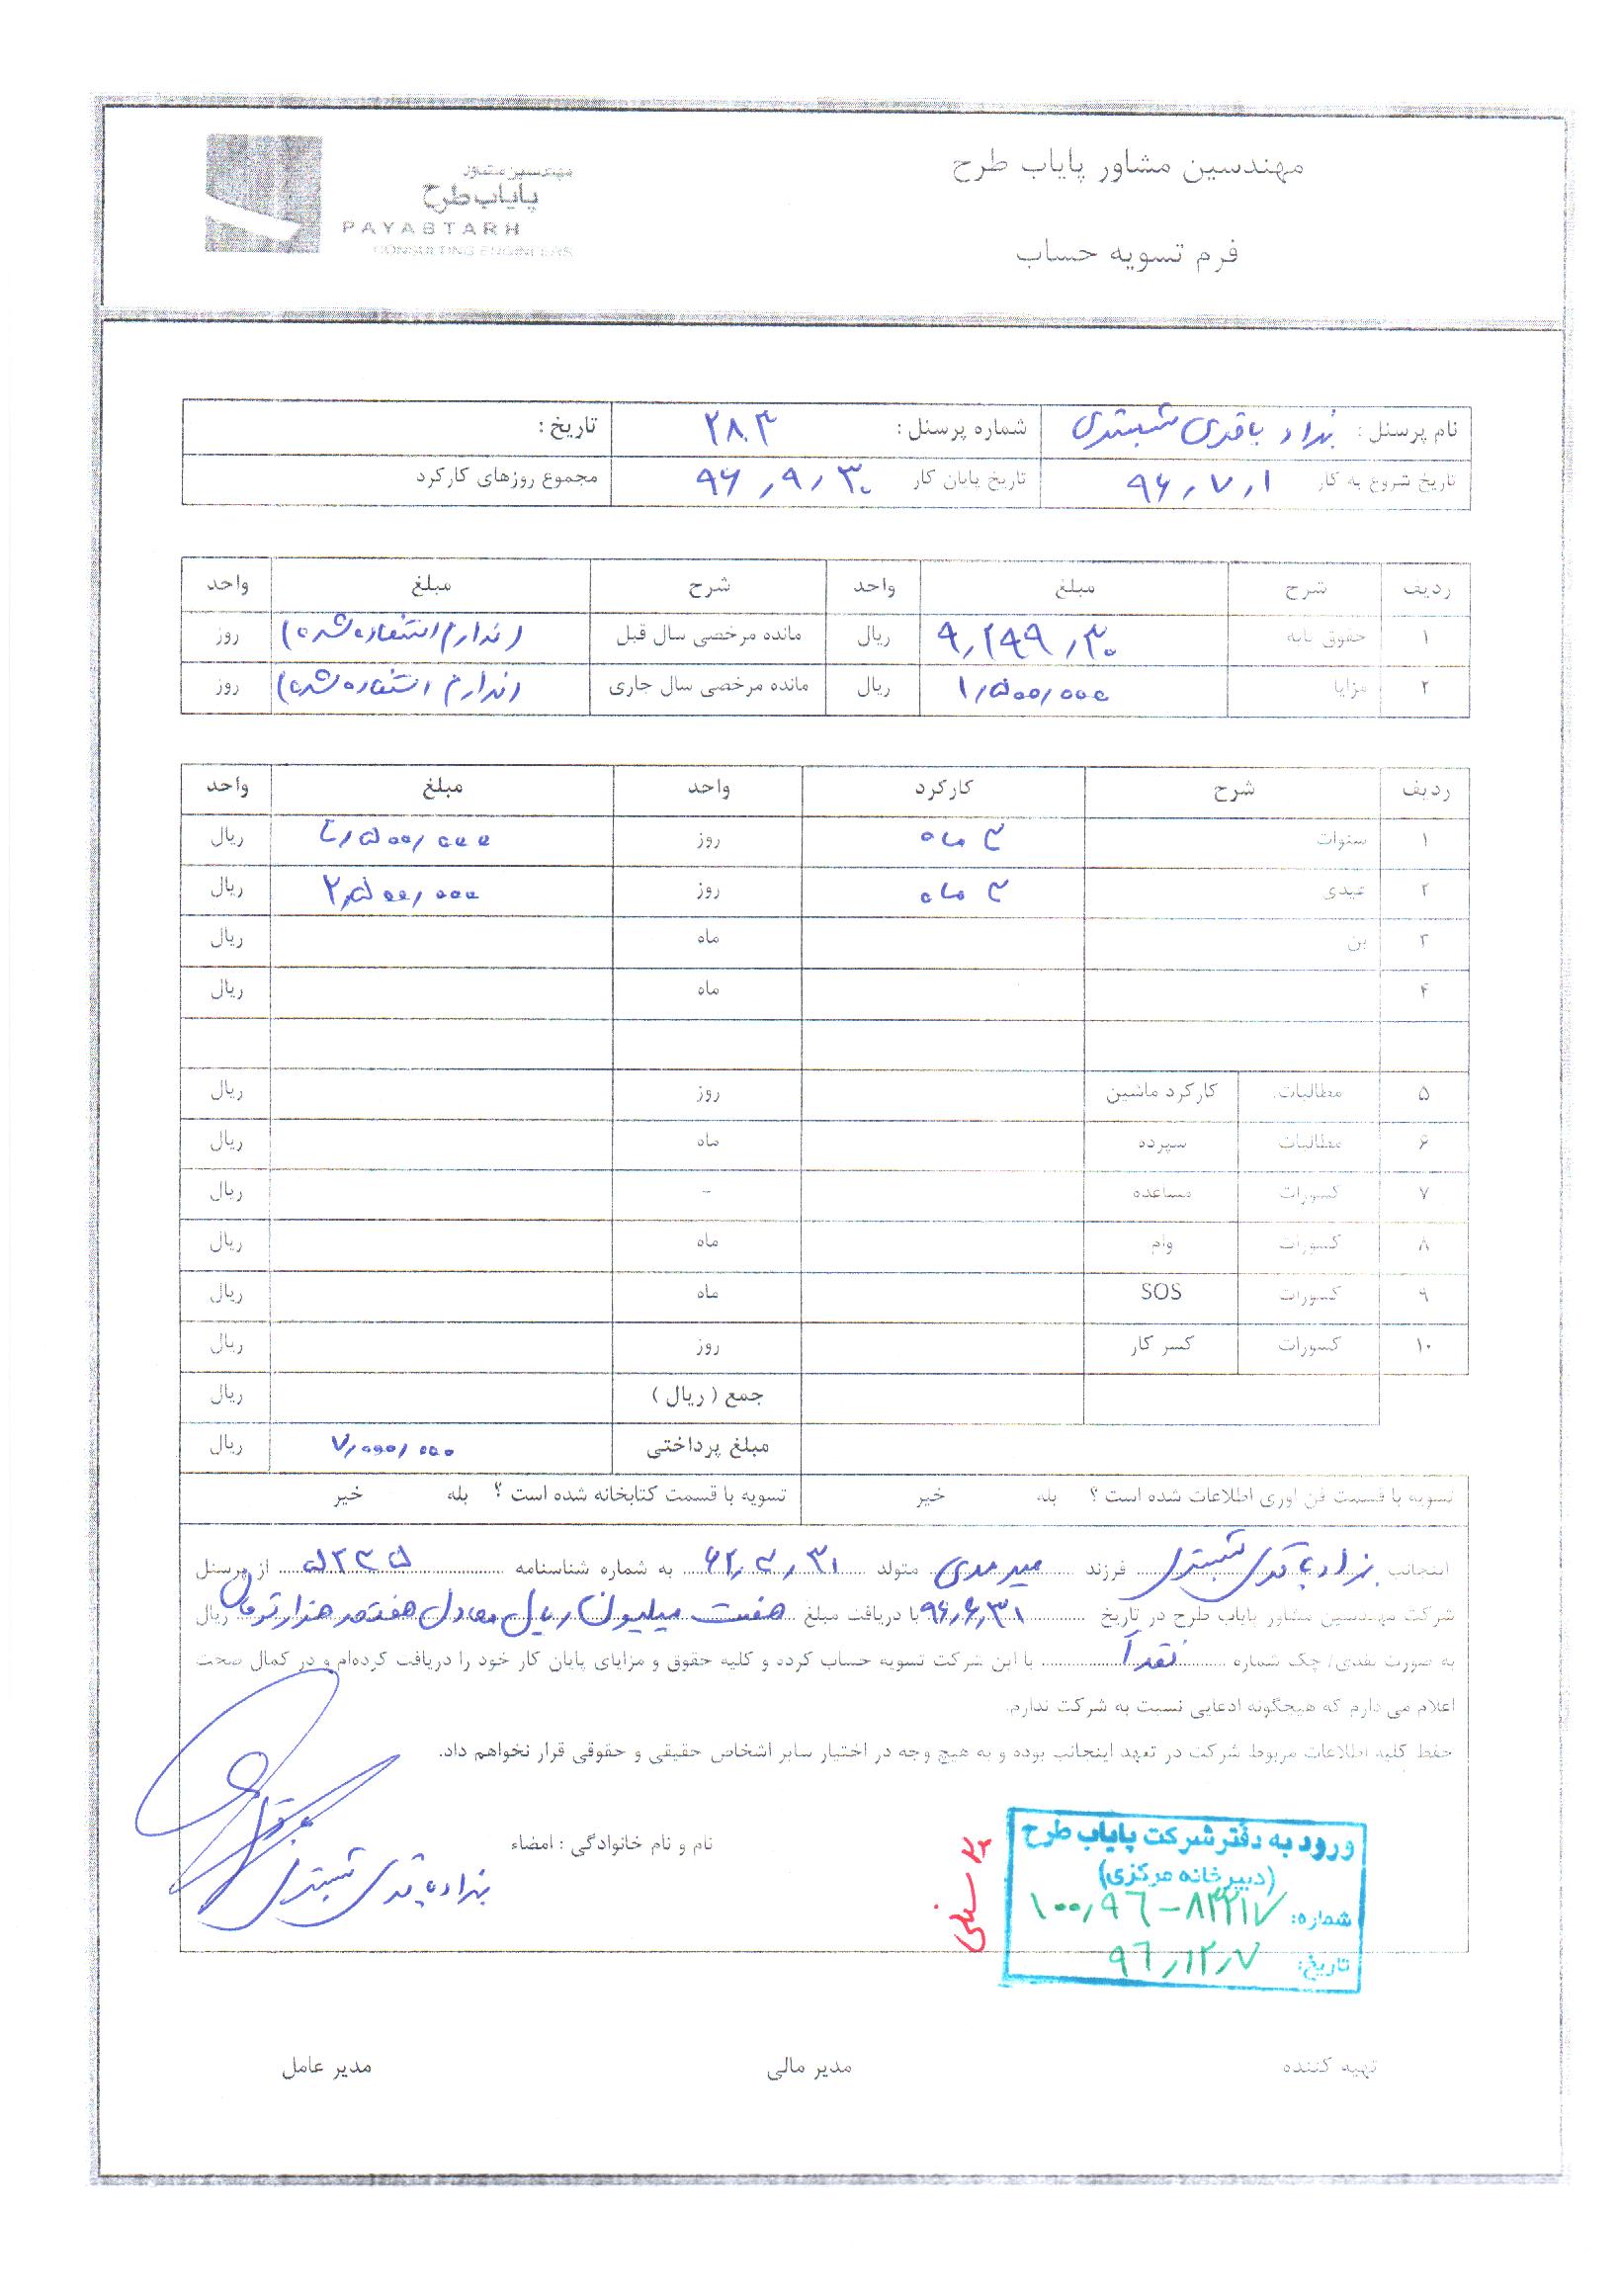 مهندسین مشاور پایاب طرح
فرم تسویه حساب
مهندسین مشاور
پایاب طرح
PAYABTARH
CONSULTING ENGINEERS
نام پرسنل : باقری شبستری شماره پرسنل : ۲۸۰۳ تاریخ :
تاریخ شروع به کار ۹۶,۷,۱ تاریخ پایان کار ۹۶,۹,۳۰ مجموع روزهای کارکرد
ردیف شرح مبلغ واحد شرح مبلغ واحد
۱ حقوق پایه ریال مانده مرخصی سال قبل (ندارم استفاده شده) روز
۲ مزایا ۱,۵۰۰,۰۰۰ ریال مانده مرخصی سال جاری (ندارم استفاده شده) روز
ردیف شرح کارکرد واحد مبلغ واحد
۱ سنوات ۳ ماه روز ریال
۲ عیدی ۳ ماه روز ۲,۵۰۰,۰۰۰ ریال
۳ بن ماه ریال
۴ ماه ریال
۵ مطالبات کارکرد ماشین روز ریال
۶ مطالبات سپرده ماه ریال
۷ کسورات مساعده - ریال
۸ کسورات وام ماه ریال
۹ کسورات SOS ماه ریال
۱۰ کسورات کسر کار روز ریال
جمع ( ریال ) ریال
مبلغ پرداختی ۷,۰۰۰,۰۰۰ ریال
تسویه با قسمت فن اوری اطلاعات شده است ؟ بله خیر تسویه با قسمت کتابخانه شده است ؟ بله خیر
اینجانب باقری شبستری فرزند متولد ۶۲,۳,۳۱ به شماره شناسنامه ۵۲۳۵ از پرسنل
شرکت مهندسین مشاور پایاب طرح در تاریخ ۹۶,۶,۳۱ با دریافت مبلغ هفت میلیون ریال معادل هفتصد هزار تومان ریال
به صورت نقدی/ چک شماره نقداً با این شرکت تسویه حساب کرده و کلیه حقوق و مزایای پایان کار خود را دریافت کرده‌ام و در کمال صحت
اعلام می دارم که هیچگونه ادعایی نسبت به شرکت ندارم.
حفظ کلیه اطلاعات مربوط شرکت در تعهد اینجانب بوده و به هیچ وجه در اختیار سایر اشخاص حقیقی و حقوقی قرار نخواهم داد.
نام و نام خانوادگی : امضاء
باقری شبستری
ورود به دفتر شرکت پایاب طرح
(دبیرخانه مرکزی)
شماره: ۱۰۰,۹۶-۸۳۲۱۷
تاریخ: ۹۶,۱۲,۷
تهیه کننده مدیر مالی مدیر عامل